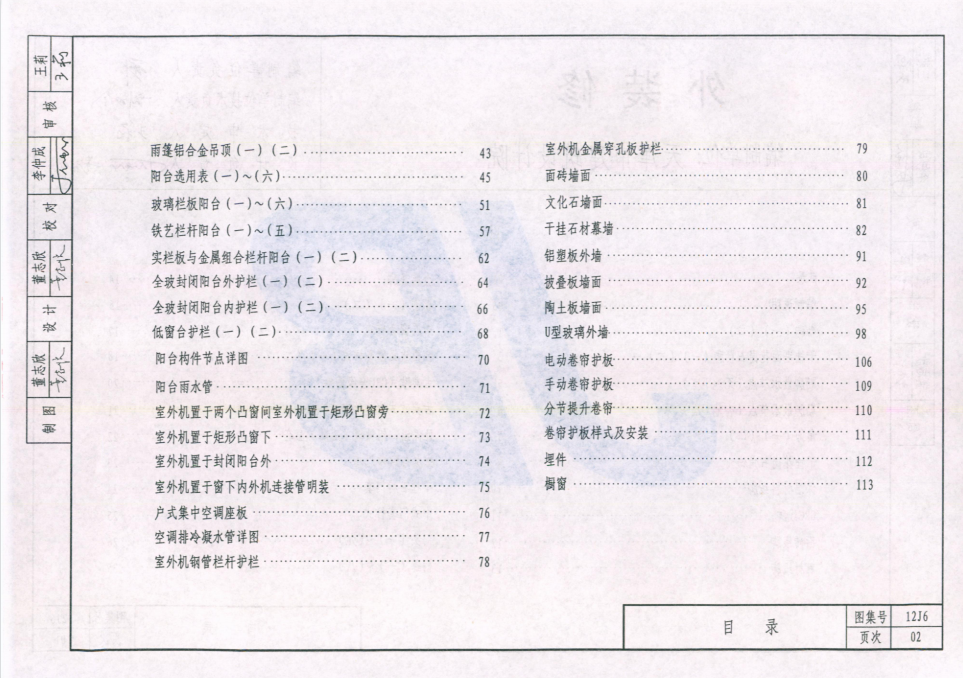 雨蓬铝合金吊顶(一)(二) 43
阳台选用表(一)~(六) 45
玻璃栏板阳台(一)~(六) 51
铁艺栏杆阳台(一)~(五) 57
实栏板与金属组合栏杆阳台(一)(二) 62
全玻封闭阳台外护栏(一)(二) 64
全玻封闭阳台内护栏(一)(二) 66
低窗台护栏(一)(二) 68
阳台构件节点详图 70
阳台雨水管 71
室外机置于两个凸窗间室外机置于矩形凸窗旁 72
室外机置于矩形凸窗下 73
室外机置于封闭阳台外 74
室外机置于窗下内外机连接管明装 75
户式集中空调座板 76
空调排冷凝水管详图 77
室外机钢管栏杆护栏 78
室外机金属穿孔板护栏 79
面砖墙面 80
文化石墙面 81
干挂石材幕墙 82
铝塑板外墙 91
披叠板墙面 92
陶土板墙面 95
U型玻璃外墙 98
电动卷帘护板 106
手动卷帘护板 109
分节提升卷帘 110
卷帘护板样式及安装 111
埋件 112
橱窗 113
审核 王莉
校对 李仲成
设计 董志欣
制图 董志欣
目 录
图集号 12J6
页次 02
外装修